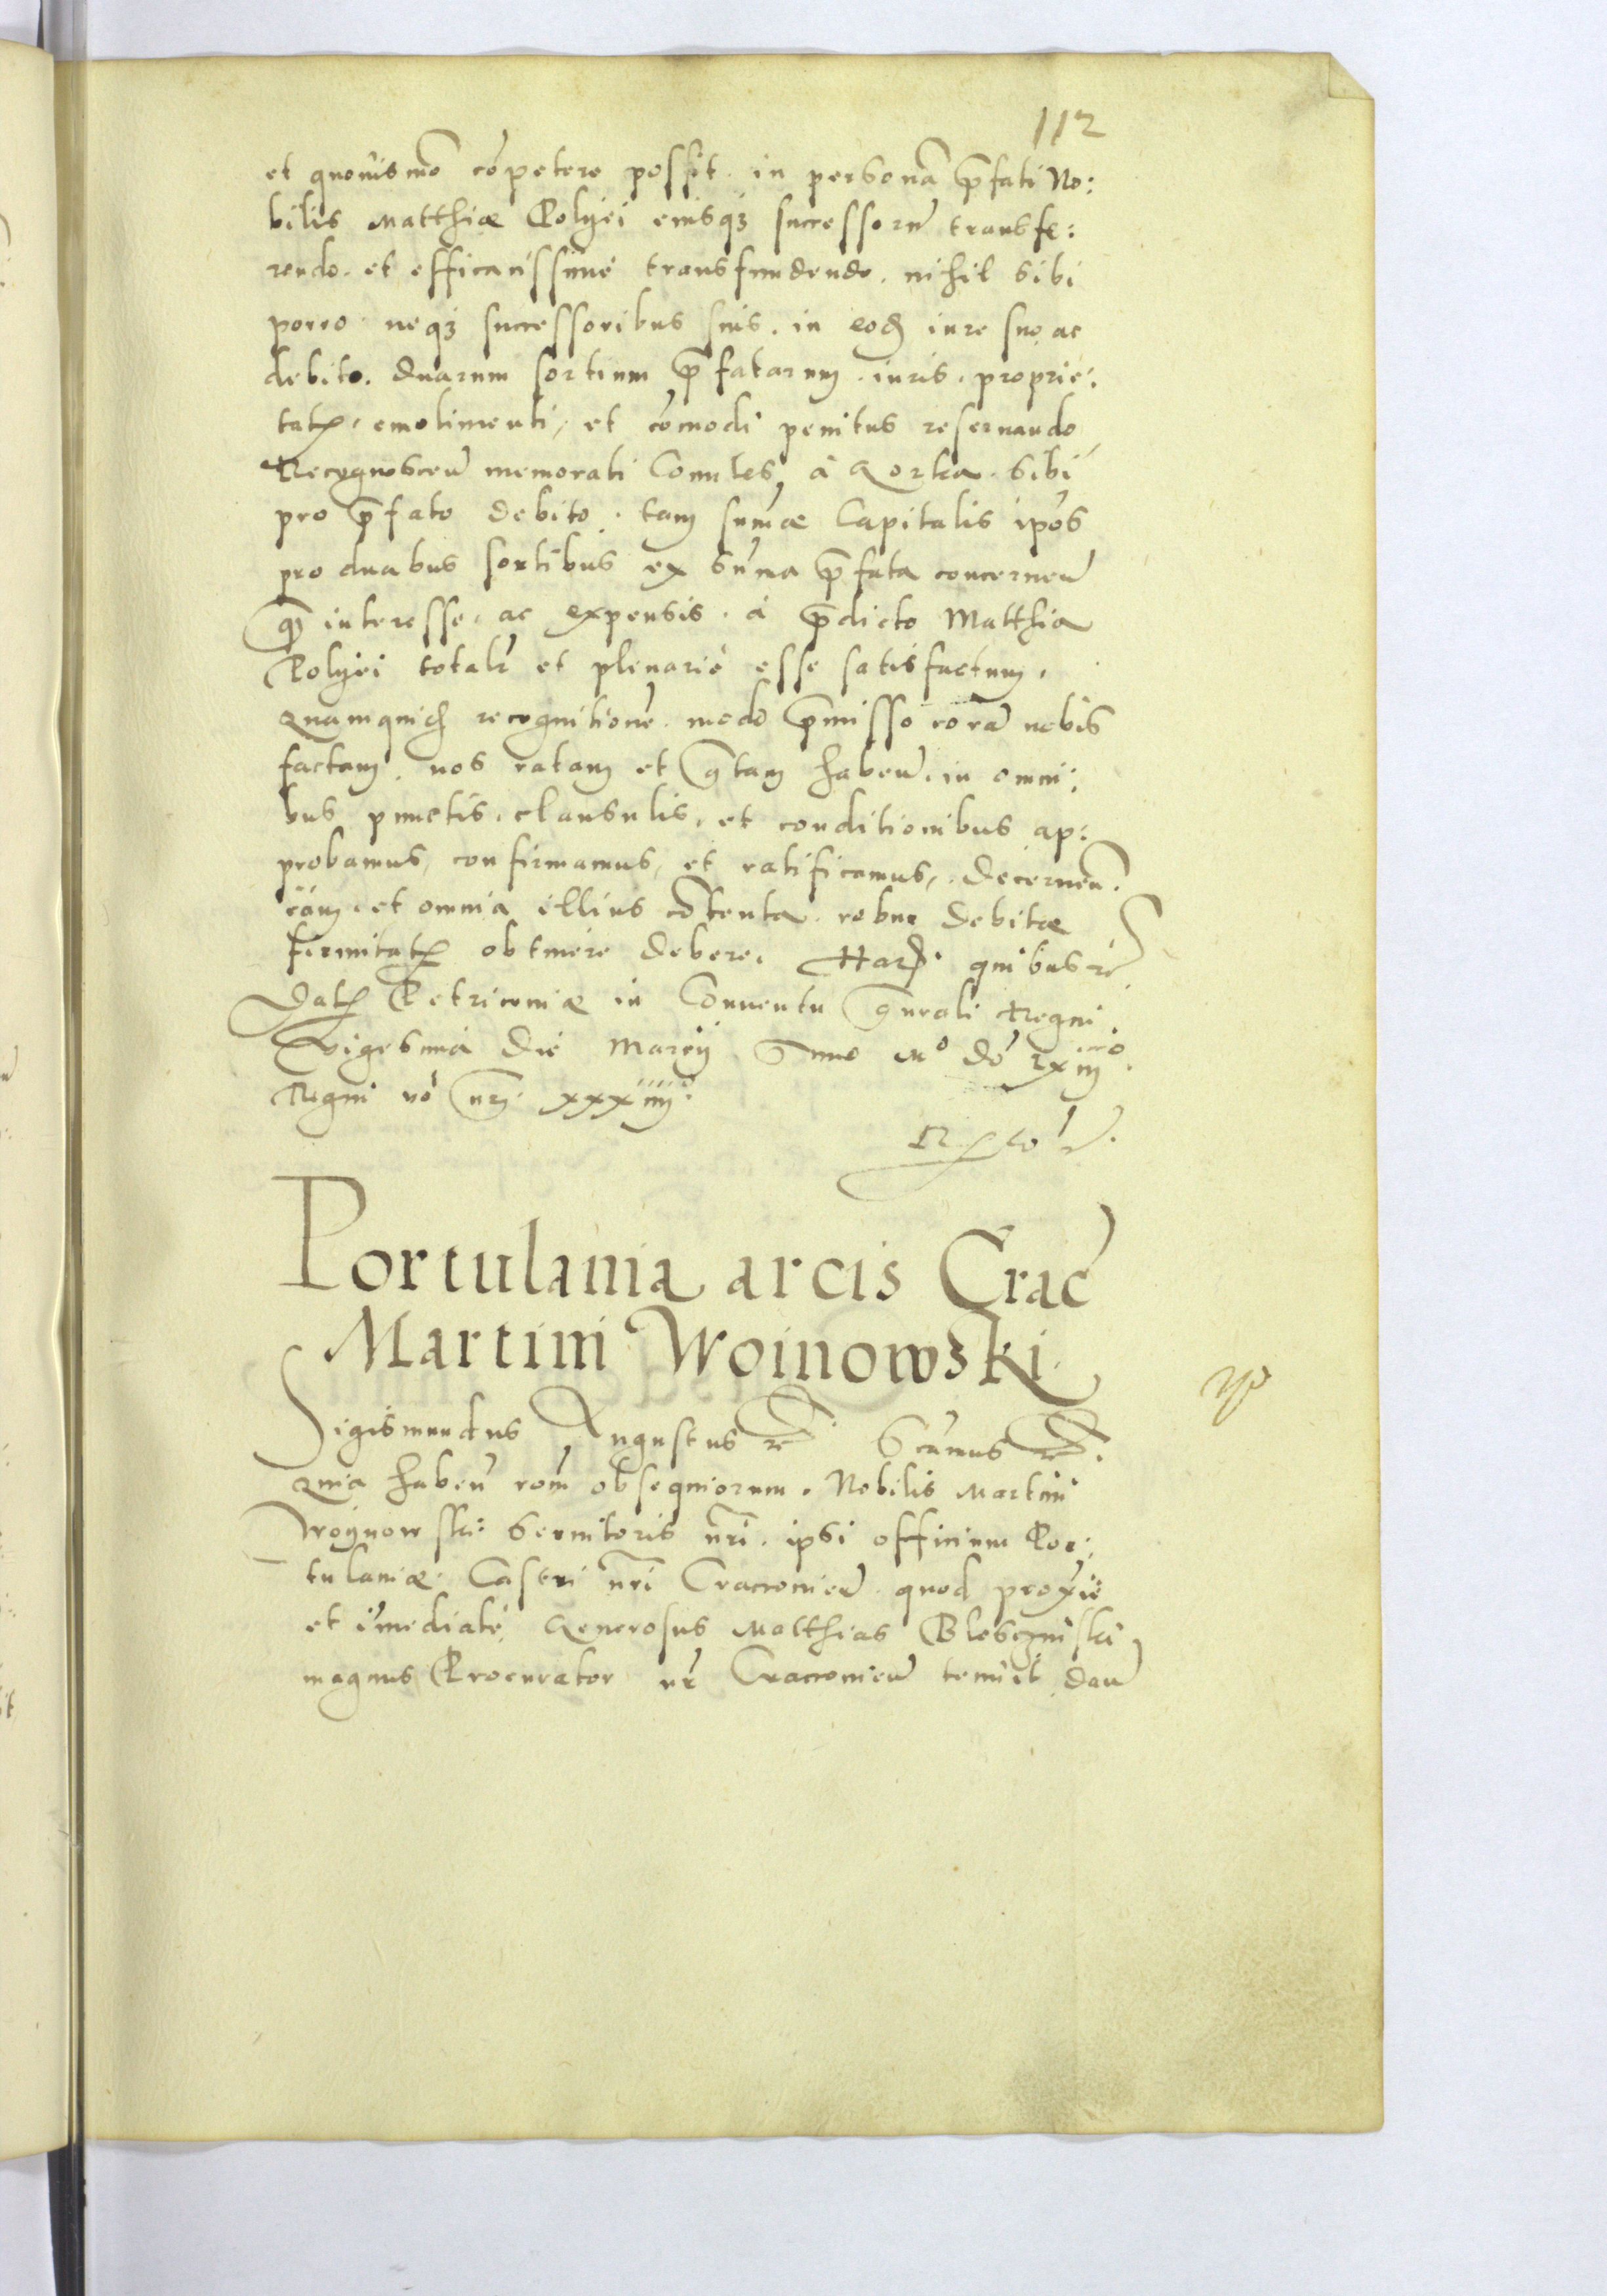 112
et quouismo co͂petere possit in personã p̃fati No:
bilis Matthiæ Polyei eiusq3 successorũ transfe:
rendo et efficacissime transfundendo, nihil sibi
porro neq3 successoribus suis, in eod̃ iure suo ac
debito. duarum sortium p̃fatarum iuris, proprie:
tatis, emolimenti, et co͂modi penitus reseruando
Recognoscen̄ memorati Comites, à Gorka sibi
pro p̃fato debito, tam sum̃æ Capitalis ip̃os
pro duabus sortibus ex sum̃a p̃fata concernen̄
q̃ interesse, ac expensis, à p̃dicto Matthia
Polyei totalr̃ et plenariè esse satisfactum,
Quamquid̃ recognitionẽ modo p̃misso corã nobis
factam, nos ratam et g̃tam haben̄, in omni:
bus punctis, clausulis, et conditionibus ap:
probamus, confirmamus, et ratificamus, decernen̄
eam et omnia illius co͂tenta robur debitæ
firmitatis obtinere debere. Har̃ quibus rẽ
Dat̃ Petricouiæ in Conuentu g̃nrali Regni
vigesima die Marcij Anno Mº dº Lxiijº
Regni vº nr̃i xxxiiij
Portulania arcis Crac̃
Martini Woinowski
Sigismundus Augustus rẽ Sc̃umus rẽ
Quia haben̄ rõm obsequiorum Nobilis Martini
Woynowski seruitoris nr̃i. ipsi officium Por:
tulaniæ Castri nr̃i Cracouien̄ quod proxie
et im̃ediate Generosus Matthias
magnus Procurator nr̃ Cracouien̄ tenuit dan̄